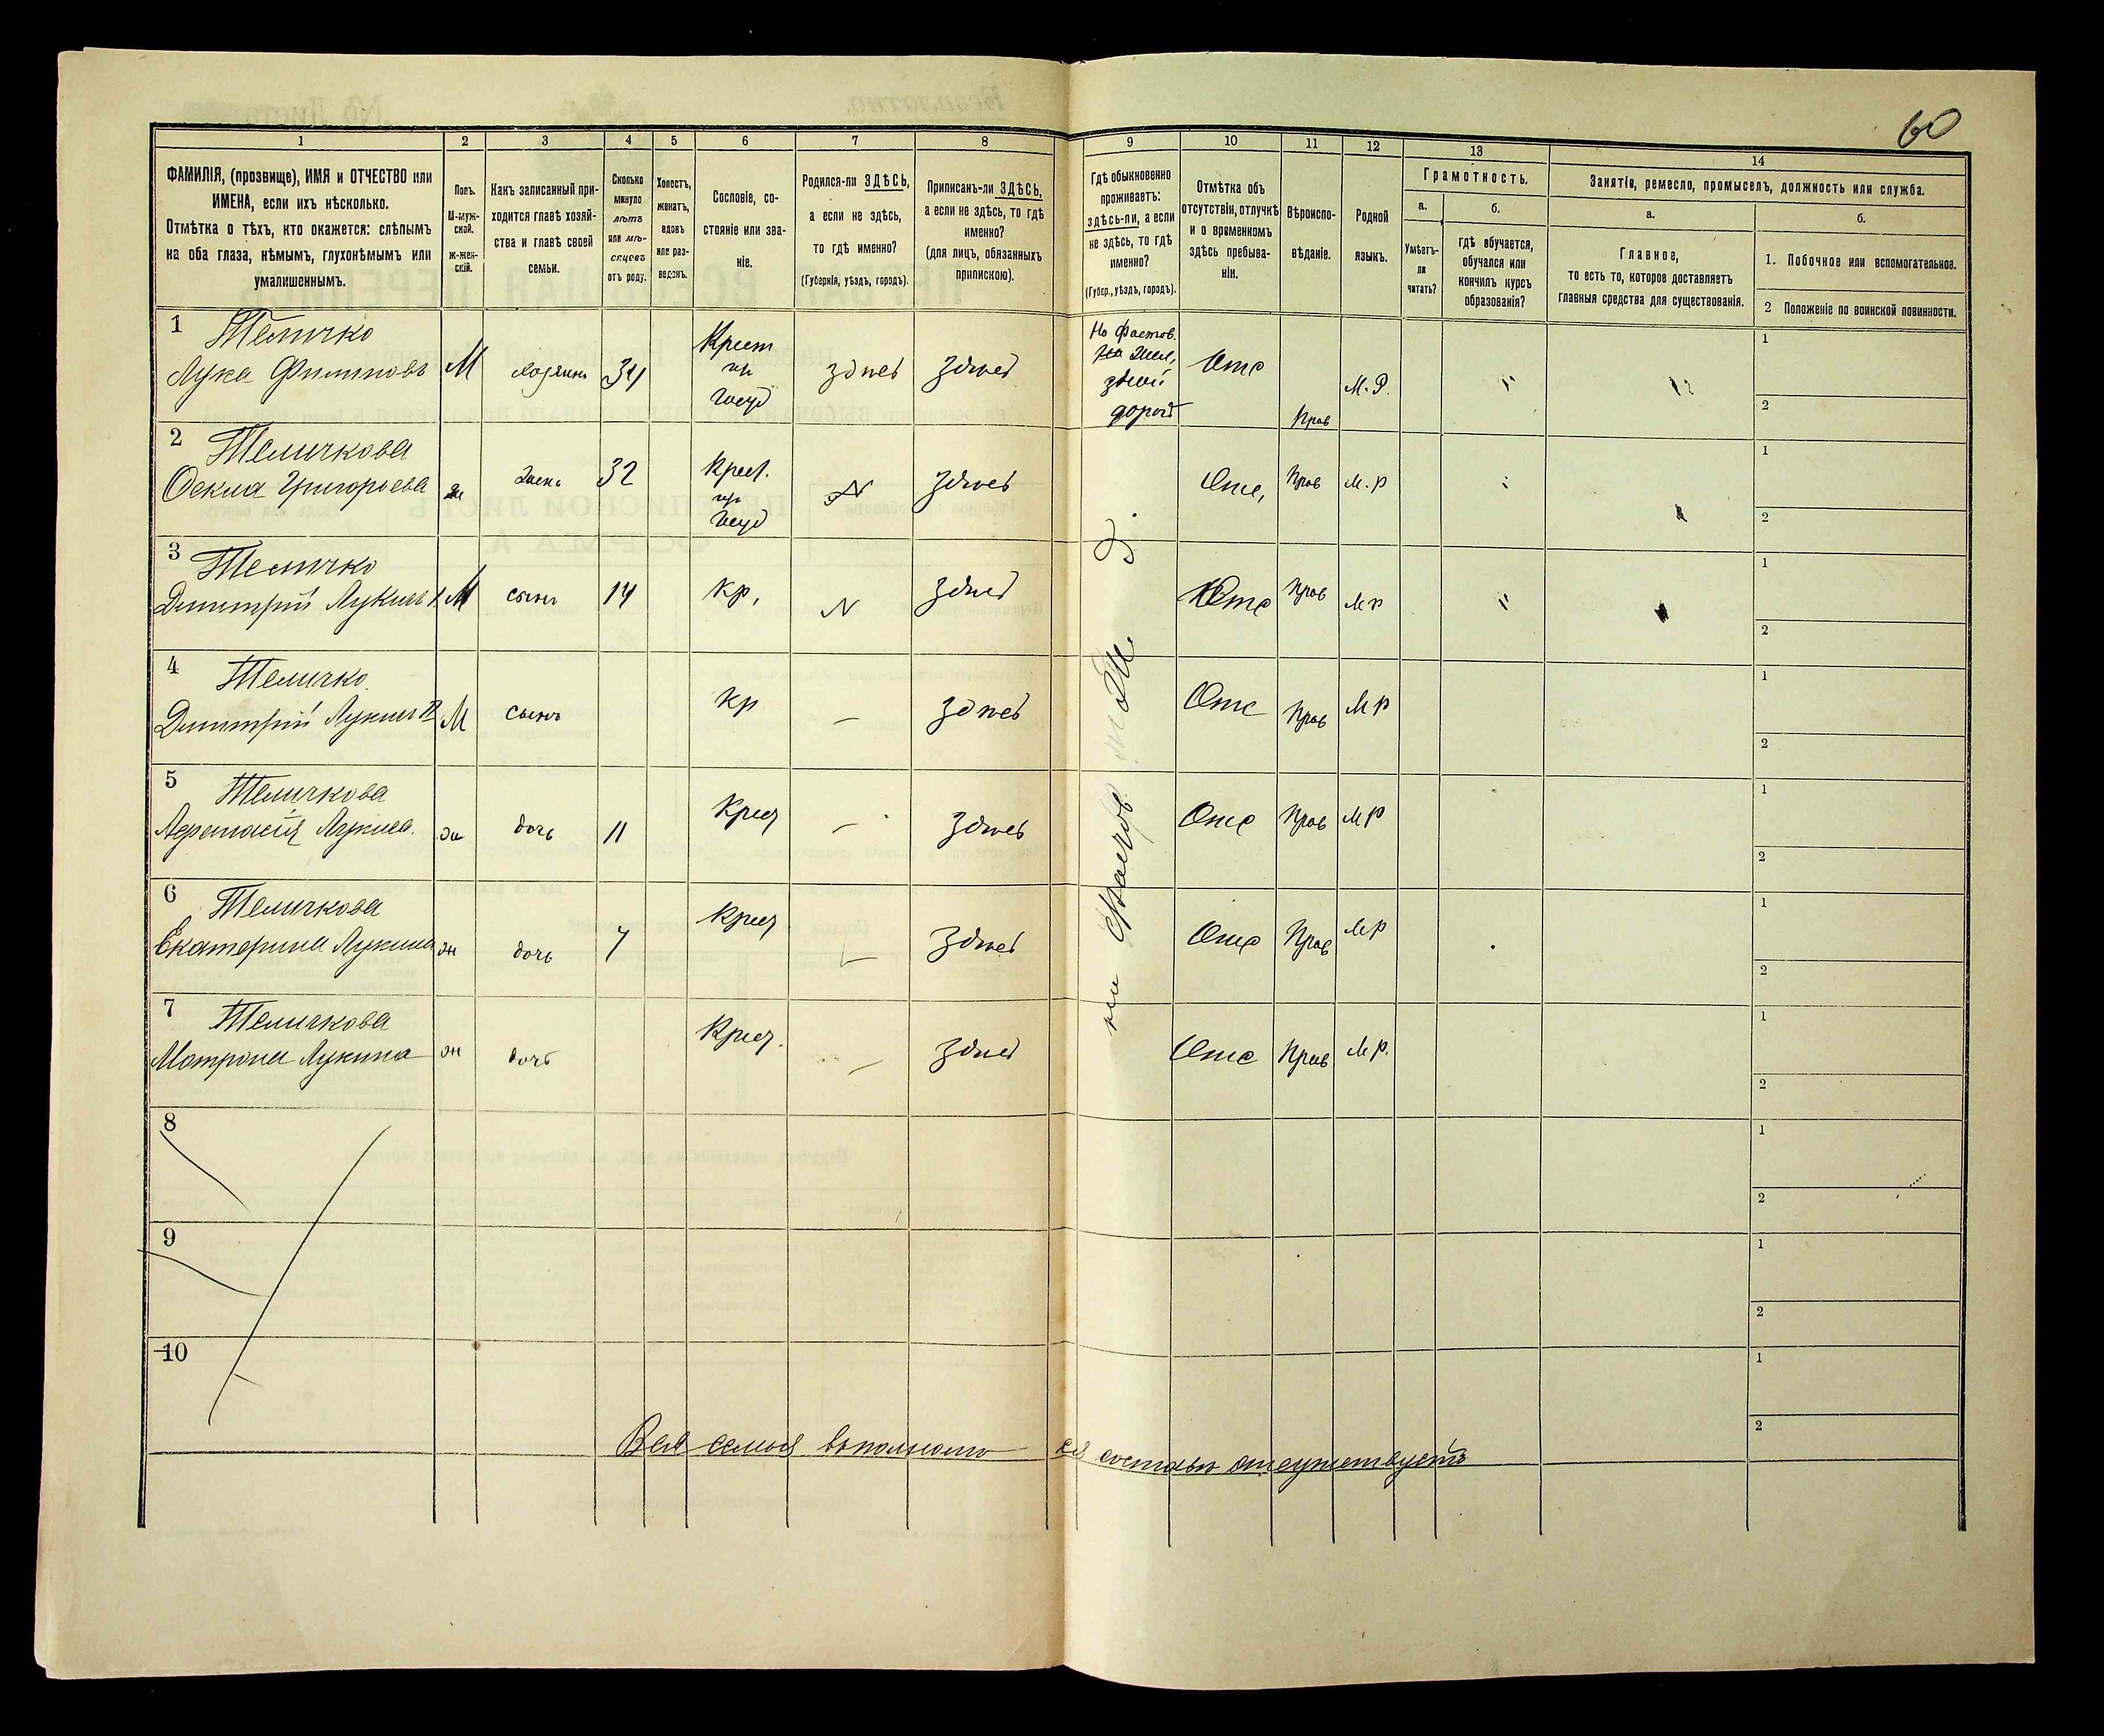 60
1
2
3
4
5
6
7
8
9
10
11
12
13
14
ФАМИЛІЯ, (прозвище), ИМЯ и ОТЧЕСТВО или
ИМЕНА, если ихъ нѣсколько.
Отмѣтка о тѣхъ, кто окажется: слѣпымъ
на оба глаза, нѣмымъ, глухонѣмымъ или
умалишеннымъ.
Полъ.
М-муж-
ской.
ж-жен-
скій.
Какъ записанный при-
ходится главѣ хозяй-
ства и главѣ своей
семьи.
Сколько
минуло
лѣтъ
или мѣ-
сяцевъ
отъ роду.
Холостъ,
женатъ,
вдовъ
или раз-
веденъ.
Сословіе, со-
стояніе или зва-
ніе.
Родился-ли ЗДѢСЬ,
а если не здѣсь,
то гдѣ именно?
(Губернія, уѣздъ, городъ).
Приписанъ-ли ЗДѢСЬ,
а если не здѣсь, то гдѣ
именно?
(для лицъ, обязанныхъ
припискою).
Гдѣ обыкновенно
проживаетъ:
здѣсь-ли, а если
не здѣсь, то гдѣ
именно?
(Губер., уѣздъ, городъ).
Отмѣтка объ
отсутствіи, отлучкѣ
и о временномъ
здѣсь пребыва-
ніи.
Вѣроиспо-
вѣданіе.
Родной
языкъ.
Грамотность.
а.
Умѣетъ-
ли
читать?
б.
гдѣ обучается,
обучался или
кончилъ курсъ
образованія?
Занятіе, ремесло, промыселъ, должность или служба.
а.
Главное,
то есть то, которое доставляетъ
главныя средства для существованія.
б.
1. Побочное или вспомогательное.
2 Положеніе по воинской повинности.
1 Теличко
Лука Филиповъ М хозяинъ 34 Крест здесь здесь На Фастов. Отс Прав М. Р. 1
дорог 2
2 Теличкова
Григорьева ж жена 32 Крест. здесь Отс, Прав М. р 1
2
3 Теличко
Димитрій Лукинъ 1 М сынъ 14 Кр, здесь Отс Прав М р 1
2
4 Теличко
Димитрій Лукинъ М сынъ Кр здесь Отс Прав М р 1
2
5 Теличкова
Лукина. ж дочь 11 Крест здесь Отс Прав М р 1
2
6 Теличкова
Екатерина Лукина ж дочь 7 Крест здесь Отс Прав М р 1
2
7 Теличкова
Матрона Лукина ж дочь Крест. здесь Отс Прав М р. 1
2
8 1
2
9 1
2
10 1
2
Вся семья вполномъ ея составѣ отсутствуетъ